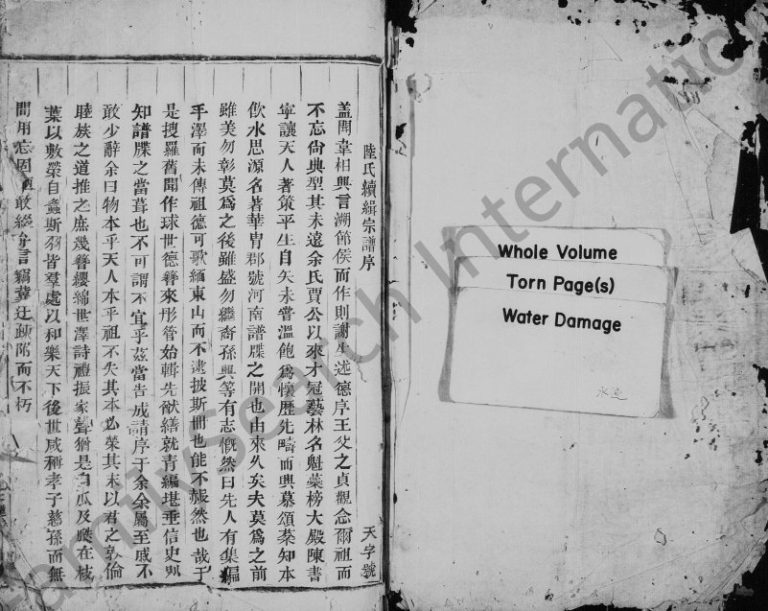 陸氏續緝宗譜序 天字號
盖聞韋相興言溯節侯而作則謝生述德序王父之貞觀念爾祖而
不忘尙典型其未遠余氏賈公以來才冠藝林名魁蘂榜大殿陳書
寧讓天人著策平生自矢未嘗溫飽爲懷歷先疇而興慕頌秦知本
飲水思源名著華胄郡號河南譜牒之開也由來久矣夫莫爲之前
雖美勿彰莫爲之後雖盛勿繼裔孫興等有志慨然曰先人有集編
手澤而未傳祖德可歌緬東山而不逮披斯冊也能不赧然也哉于
是搜羅舊聞作球世德簪來彤管始輯先猷繕就靑編堪垂信史與
知譜牒之當葺也不可謂不宜乎茲當告成請序于余余屬至戚不
敢少辭余曰物本乎天人本乎祖不失其本必榮其末以君之敦倫
睦族之道推之庶幾簪纓綿世澤詩禮振家聲猶是白瓜及瓞在枝
葉以敷榮自螽斯羽皆羣處以和樂天下後世咸稱孝子慈孫而無
間用忘固 敢綴弁言竊冀迂疎附而不朽
Whole Volume
Torn Page(s)
Water Damage
水
FamilySearch International